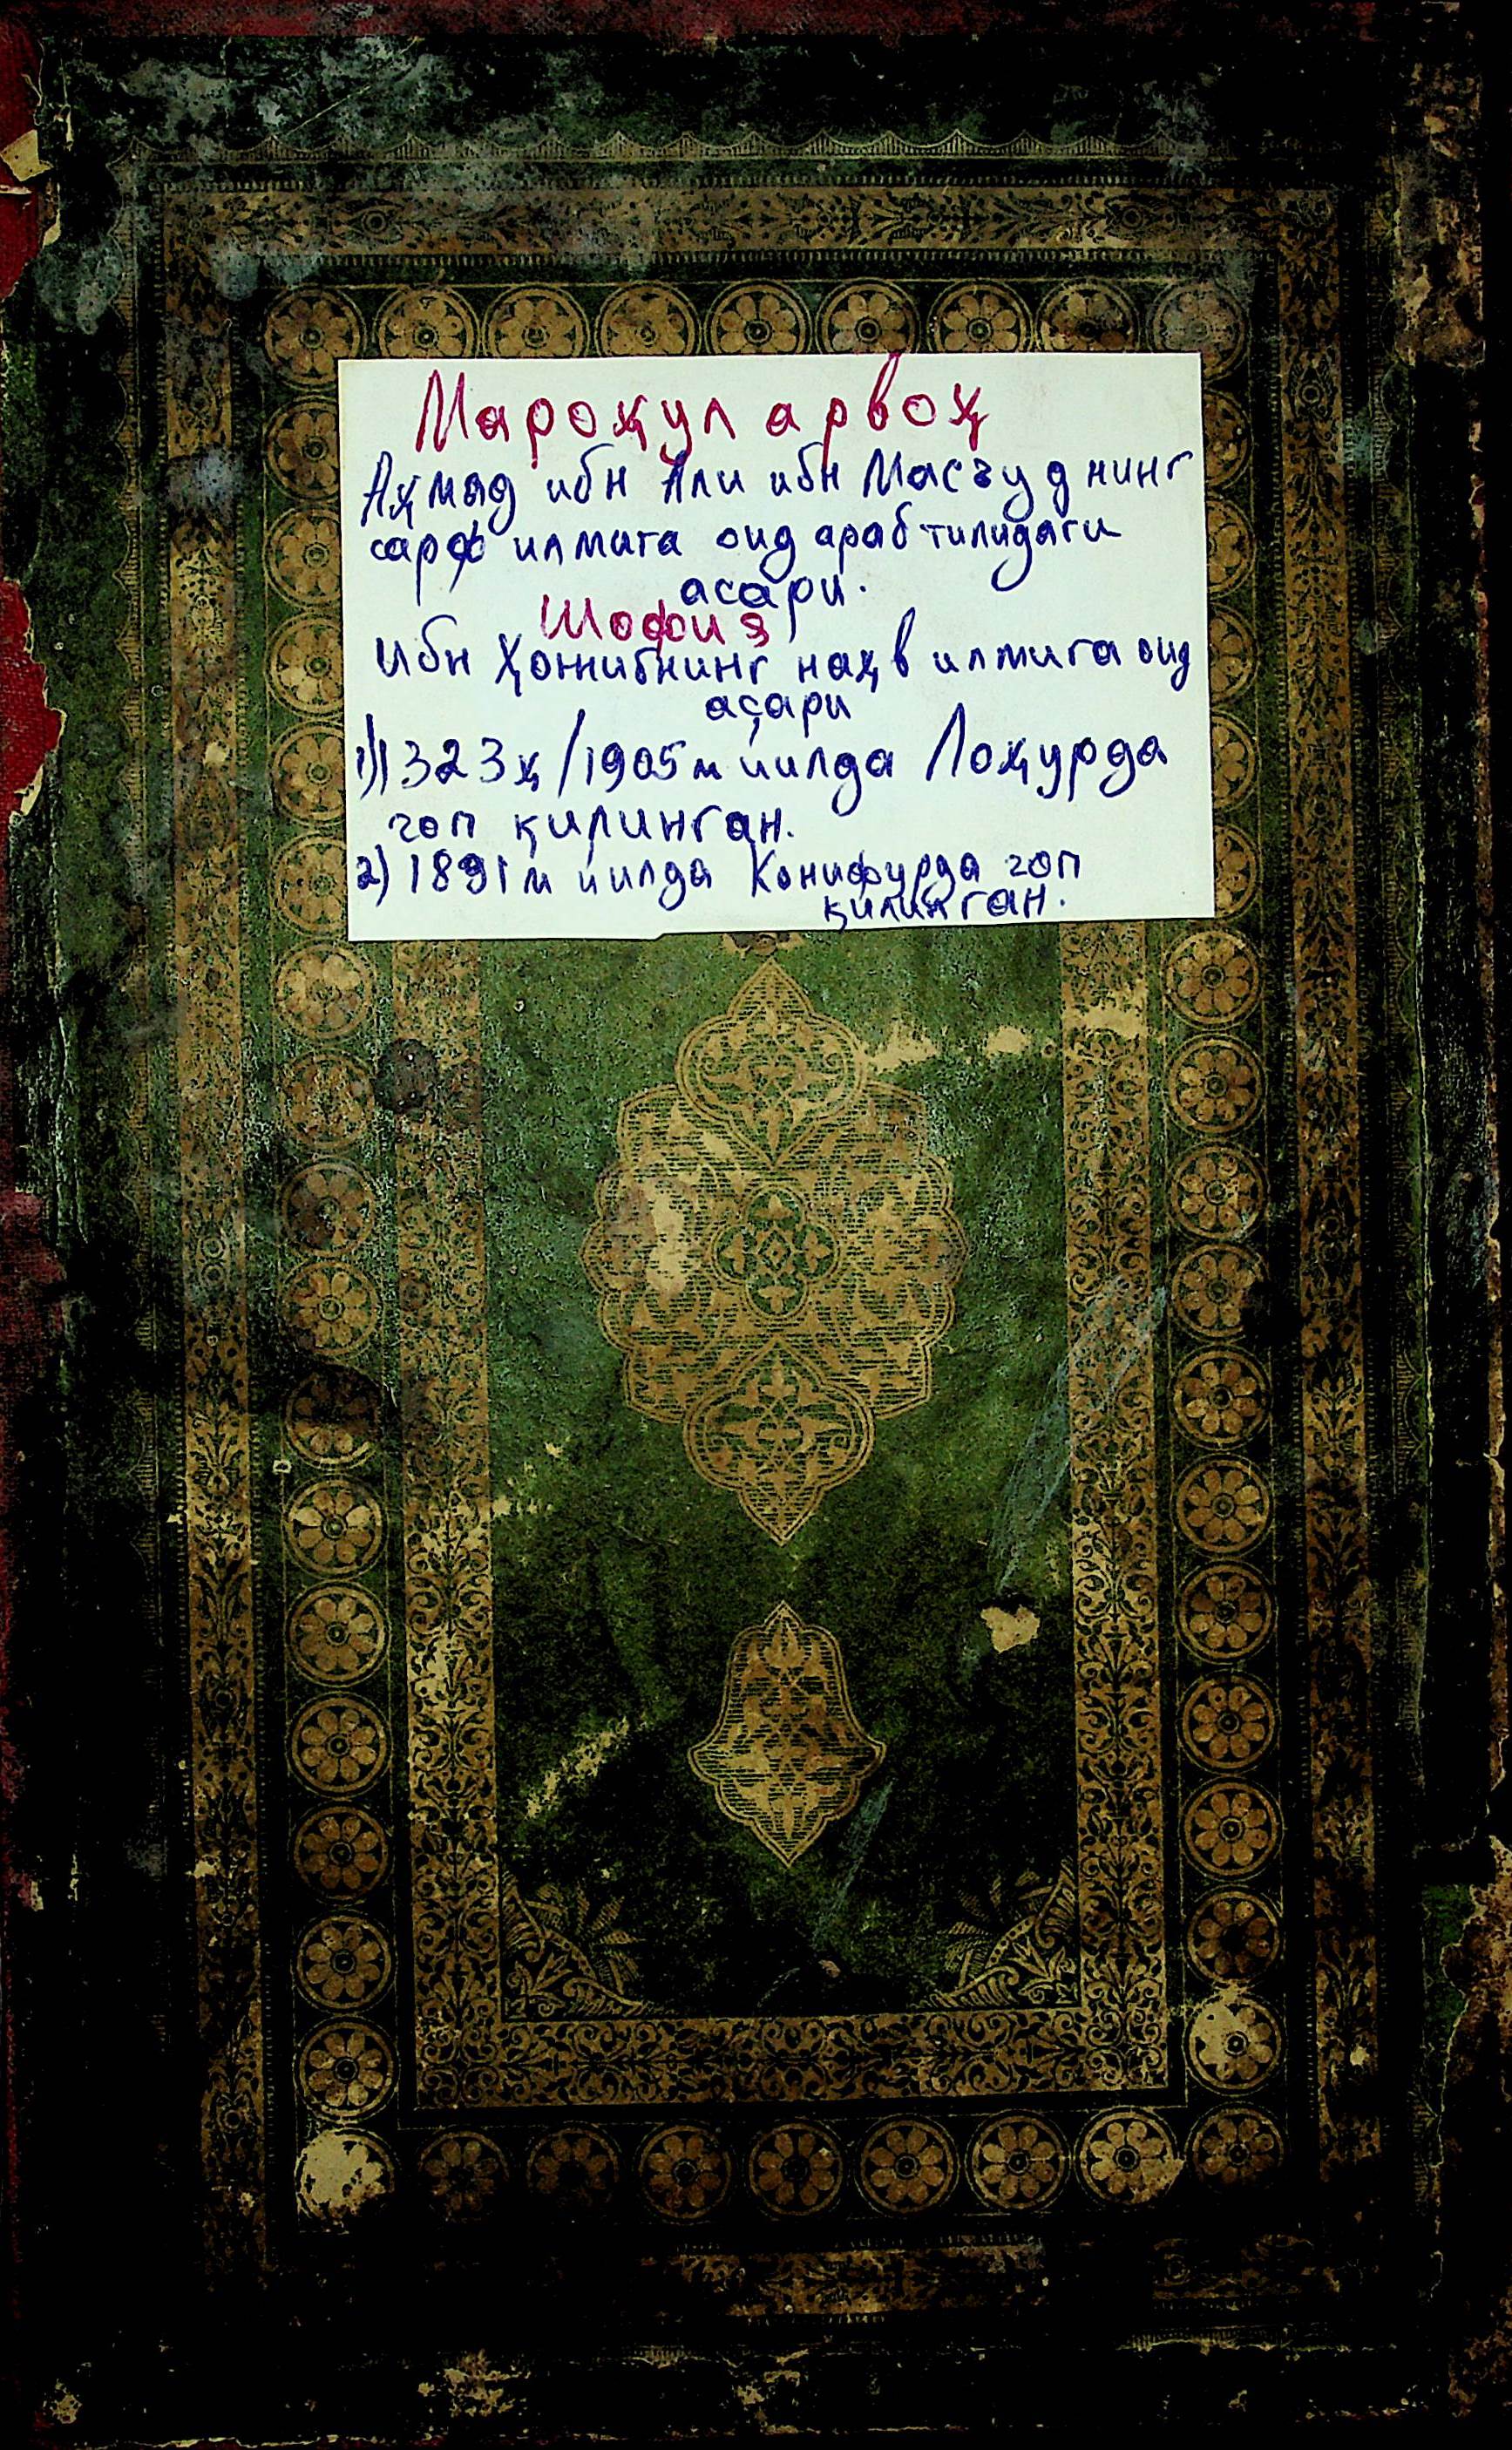 Мароҳул арвоҳ
Аҳмад ибн Али ибн Масъуднинг
сарф илмига оид араб тилидаги
асари.
Шофия
Ибн Ҳожибнинг наҳв илмига оид
асари
1) 1323ҳ/1905м йилда Лоҳурда
чоп қилинган.
2) 1891м йилда Конифурда чоп
қилинган.